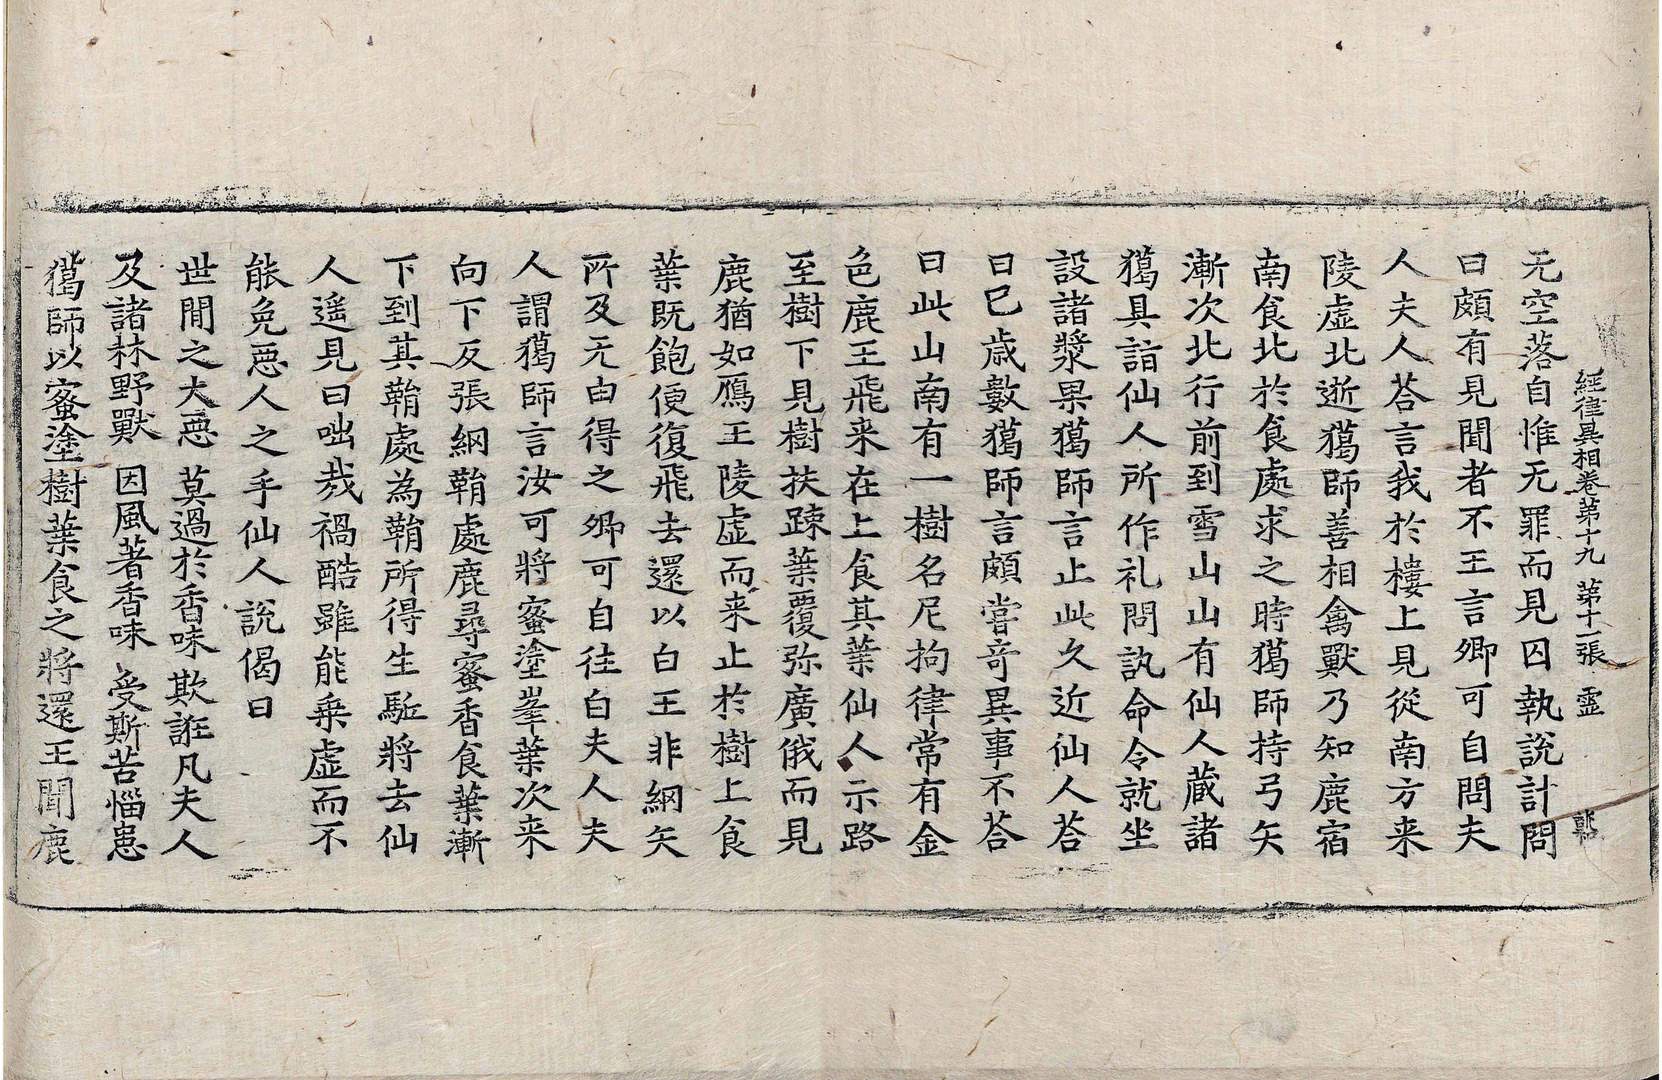 經律異相卷第十九 第十一張 靈
无空落自惟无罪而見囚執說計問
曰頗有見聞者不王言卿可自問夫
人夫人荅言我於樓上見從南方来
陵虛北逝獦師善相禽獸乃知鹿宿
南食北於食處求之時獦師持弓矢
漸次北行前到雪山山有仙人藏諸
獦具詣仙人所作礼問訊命令就坐
設諸漿果獦師言止此久近仙人荅
曰已歳數獦師言頗嘗竒異事不荅
曰此山南有一樹名尼拘律常有金
色鹿王飛来在上食其葉仙人示路
至樹下見樹扶踈葉覆弥廣俄而見
鹿猶如鴈王陵虛而来止於樹上食
葉既飽便復飛去還以白王非網矢
所及无由得之卿可自往白夫人夫
人謂獦師言汝可將蜜塗峯葉次来
向下反張網鞘處鹿尋蜜香食葉漸
下到其鞘處為鞘所得生駈將去仙
人遥見曰咄哉禍酷雖能乗虛而不
能免惡人之手仙人說偈曰
世間之大惡 莫過於香味 欺誑凡夫人
及諸林野獸 因風著香味 受斯苦惱患
獦師以蜜塗樹葉食之將還王聞鹿